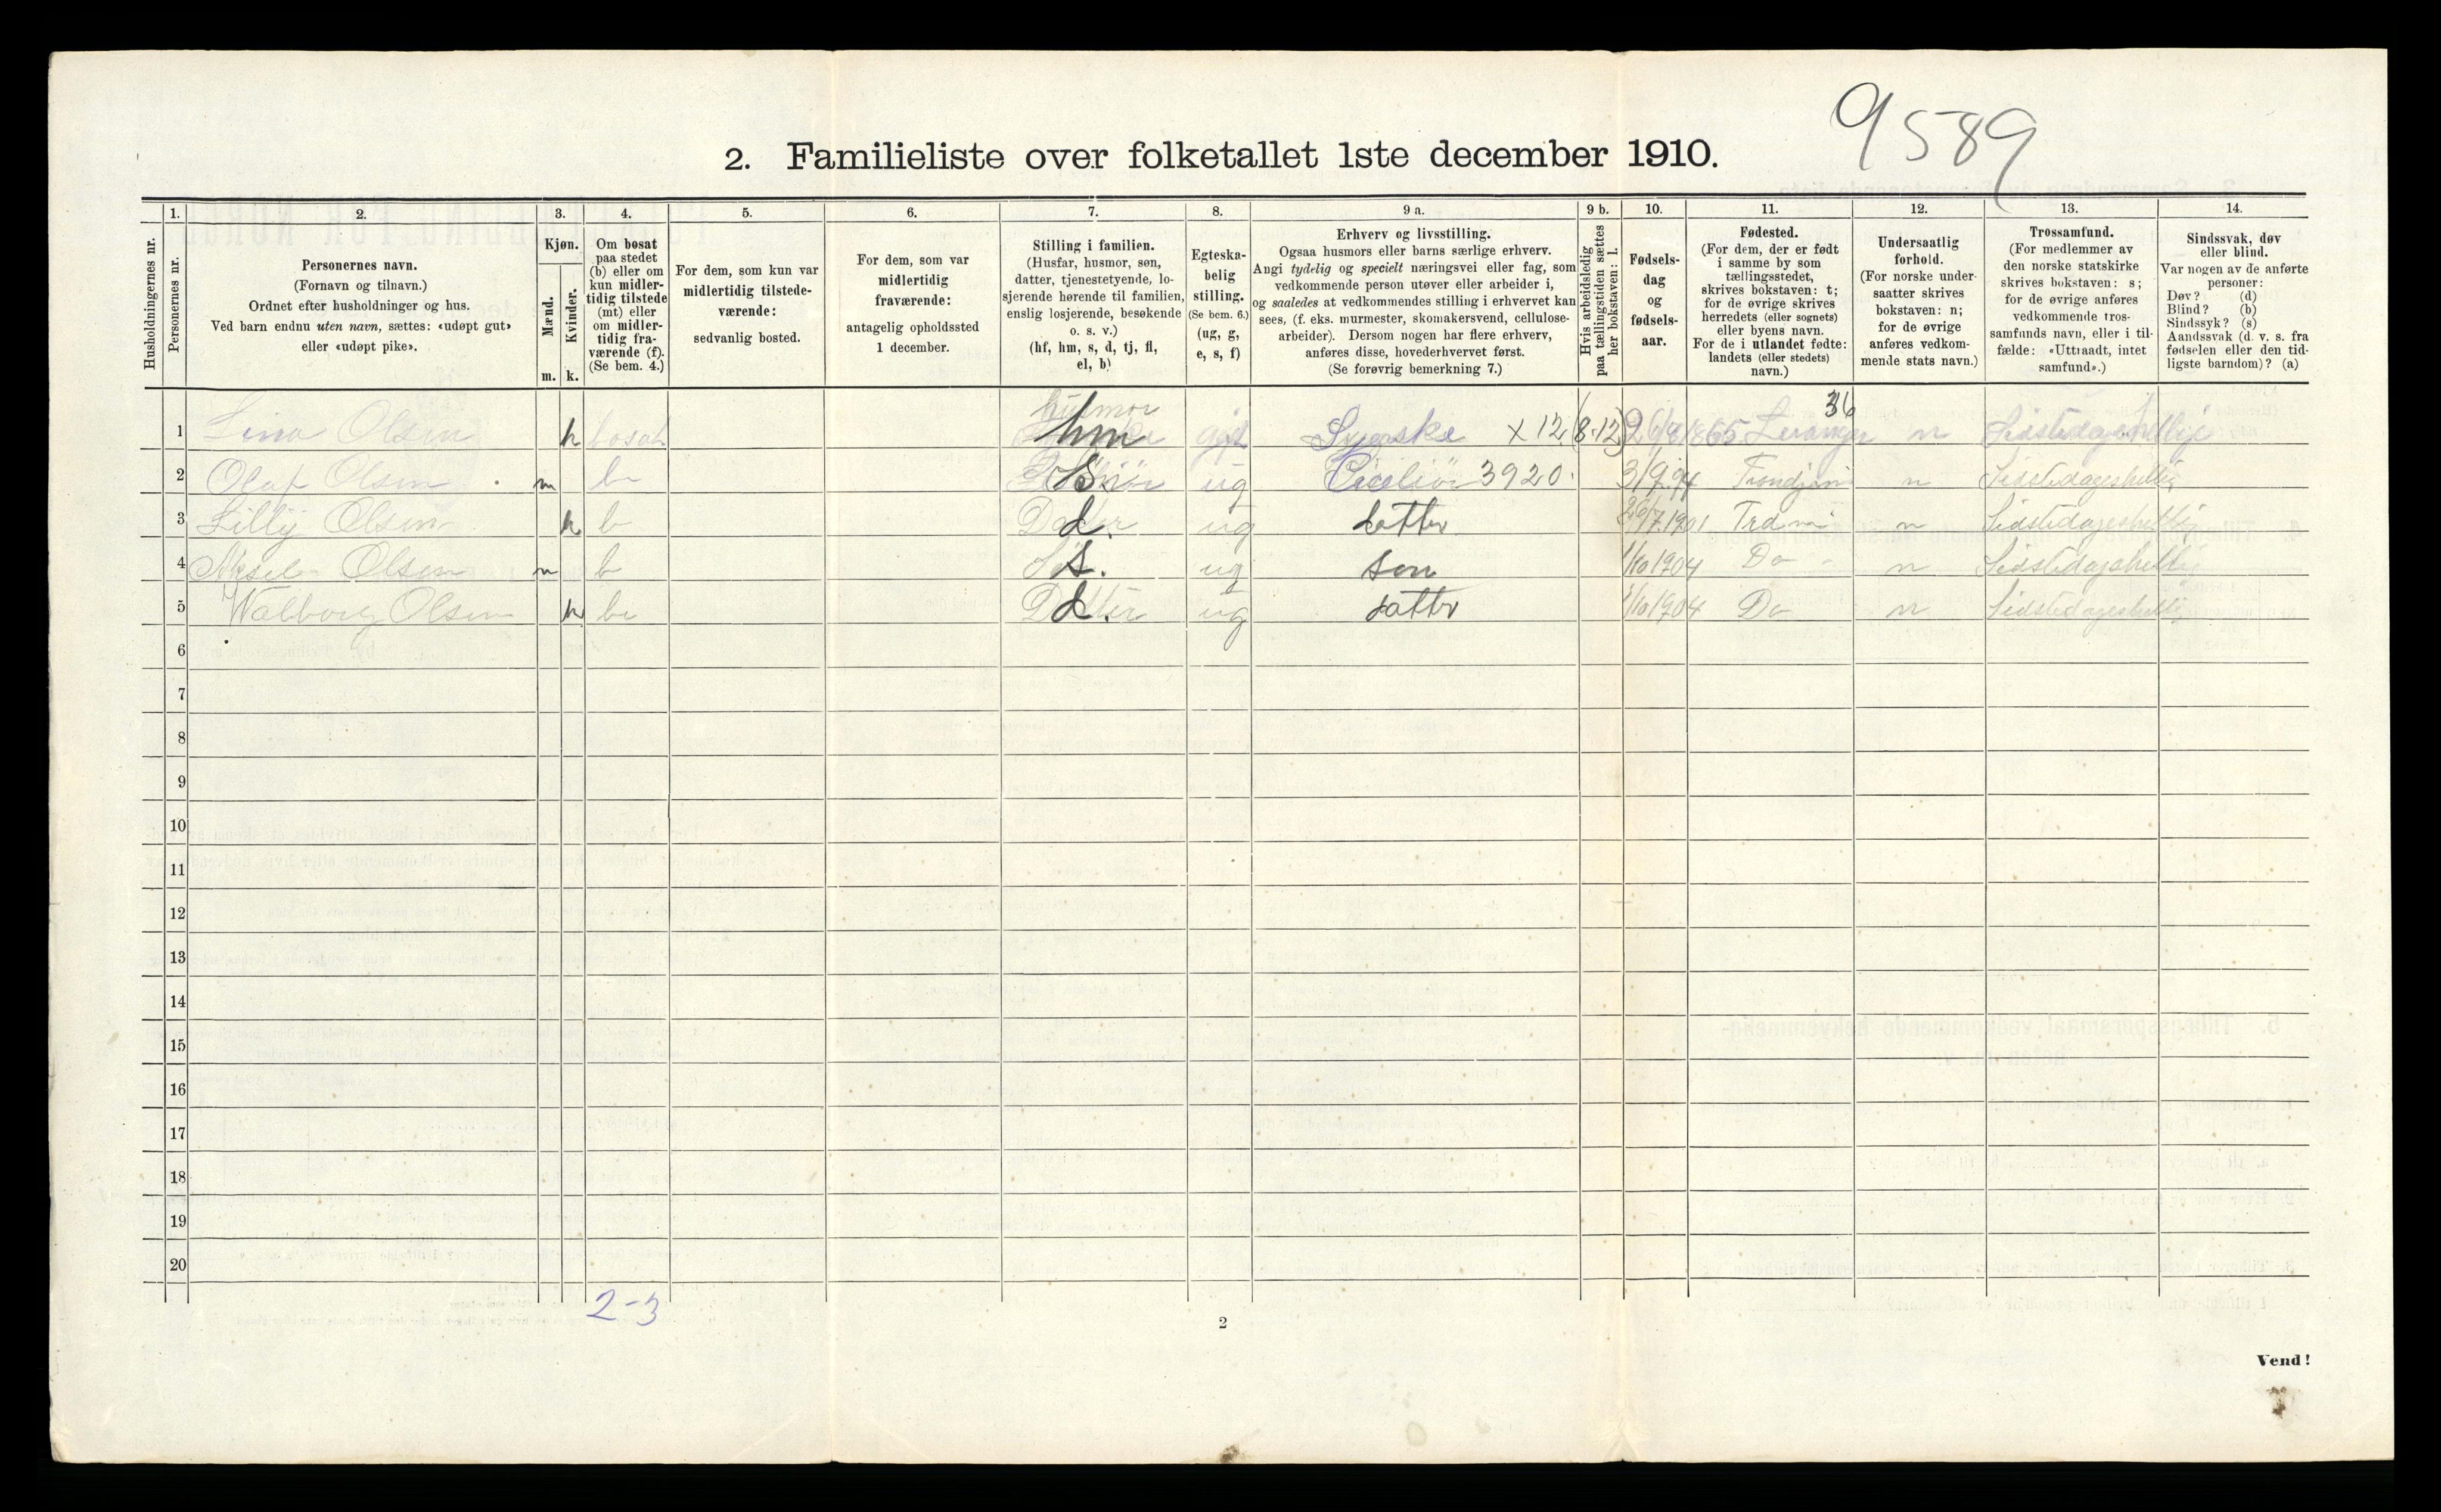 9589
2. Familieliste over folketallet 1ste december 1910.
1. 2. 3. 4. 5. 6. 7. 8. 9 a. 9 b. 10. 11. 12. 13. 14.
Husholdningernes nr.
Personernes nr.
Personernes navn.
(Fornavn og tilnavn.)
Ordnet efter husholdninger og hus.
Ved barn endnu uten navn, sættes: «udøpt gut»
eller «udøpt pike».
Kjøn.
Mænd.
Kvinder.
m. k.
Om bosat
paa stedet
(b) eller om
kun midler-
tidig tilstede
(mt) eller
om midler-
tidig fra-
værende (f).
(Se bem. 4.)
For dem, som kun var
midlertidig tilstede-
værende:
sedvanlig bosted.
For dem, som var
midlertidig
fraværende:
antagelig opholdssted
1 december.
Stilling i familien.
(Husfar, husmor, søn,
datter, tjenestetyende, lo-
sjerende hørende til familien,
enslig losjerende, besøkende
o. s. v.)
(hf, hm, s, d, tj, fl,
el, b)
Egteska-
belig
stilling.
(Se bem. 6.)
(ug, g,
e, s, f)
Erhverv og livsstilling.
Ogsaa husmors eller barns særlige erhverv.
Angi tydelig og specielt næringsvei eller fag, som
vedkommende person utøver eller arbeider i,
og saaledes at vedkommendes stilling i erhvervet kan
sees, (f. eks. murmester, skomakersvend, cellulose-
arbeider). Dersom nogen har flere erhverv,
anføres disse, hovederhvervet først.
(Se forøvrig bemerkning 7.)
Hvis arbeidsledig
paa tællingstiden sættes
her bokstaven: l.
Fødsels-
dag
og
fødsels-
aar.
Fødested.
(For dem, der er født
i samme by som
tællingsstedet,
skrives bokstaven: t;
for de øvrige skrives
herredets (eller sognets)
eller byens navn.
For de i utlandet fødte:
landets (eller stedets)
navn.)
Undersaatlig
forhold.
(For norske under-
saatter skrives
bokstaven: n;
for de øvrige
anføres vedkom-
mende stats navn.)
Trossamfund.
(For medlemmer av
den norske statskirke
skrives bokstaven: s;
for de øvrige anføres
vedkommende tros-
samfunds navn, eller i til-
fælde: «Uttraadt, intet
samfund».)
Sindssvak, døv
eller blind.
Var nogen av de anførte
personer:
Døv? (d)
Blind? (b)
Sindssyk? (s)
Aandssvak (d. v. s. fra
fødselen eller den tid-
ligste barndom)? (a)
husmor 36
1 Lina Olsen k bosat hm Syerske x 12 (8-12) 1865 Levanger n
2 Olaf Olsen m b s ug 3920. 3/9 94 Trondjem n Sidstedageshellig
3 Lilly Olsen k b d. ug datter 26/7.1901 n Sidstedageshellig
4 Aksel Olsen m b s. ug søn 1/10 1904 Do n Sidstedageshellig
5 Walborg Olsen k b d. ug datter 1/10 1904 Do n Sidstedageshellig
6
7
8
9
10
11
12
13
14
15
16
17
18
19
20
2-3
2
Vend!